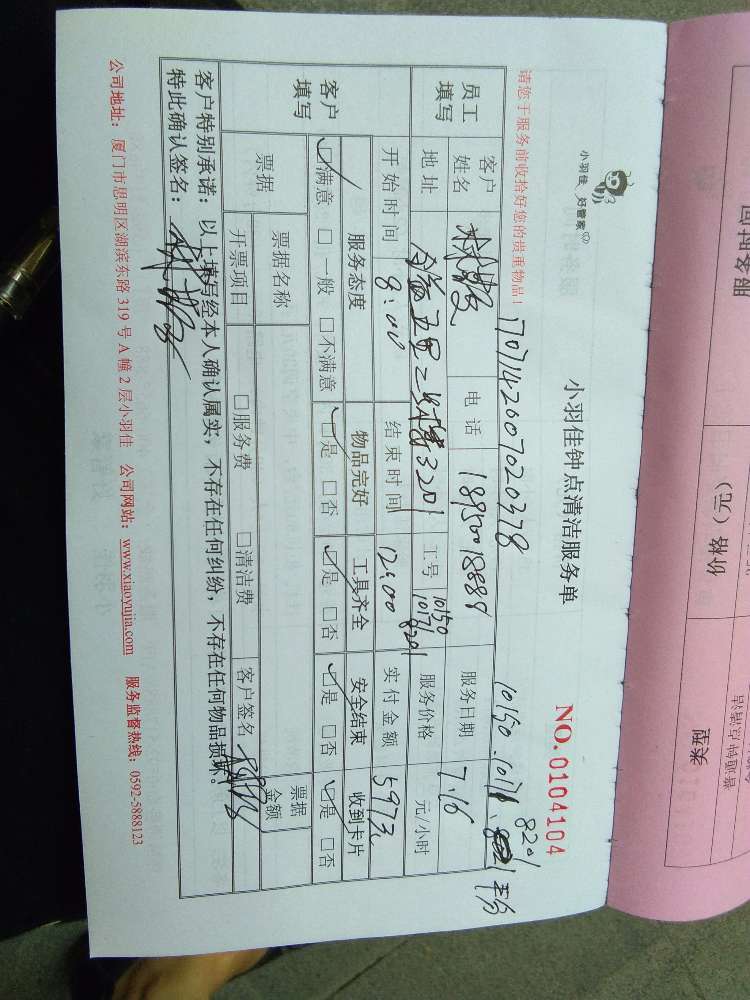 小羽佳 好管家
小羽佳钟点清洁服务单
NO. 0104104
请您于服务前收拾好您的贵重物品！
1707142607020378
10150.10171.8201平分
员工填写
客户姓名
电话 18950018889
服务日期 7.16
地址
五里二 3201
工号 10150 10171 8201
服务价格 元/小时
开始时间 8:00
结束时间 12:00
实付金额 597元
客户填写
服务态度 物品完好 工具齐全 安全结束 收到卡片
☑满意 □一般 □不满意 ☑是 □否 ☑是 □否 ☑是 □否 ☑是 □否
票据
票据名称
票据金额
开票项目 □服务费 □清洁费 客户签名
客户特别承诺：以上填写经本人确认属实，不存在任何纠纷，不存在任何物品损坏。
特此确认签名：
公司地址：厦门市思明区湖滨东路 319 号 A 幢 2 层小羽佳 公司网站：www.xiaoyujia.com 服务监督热线：0592-5888123
服务时间
价格（元）
类型